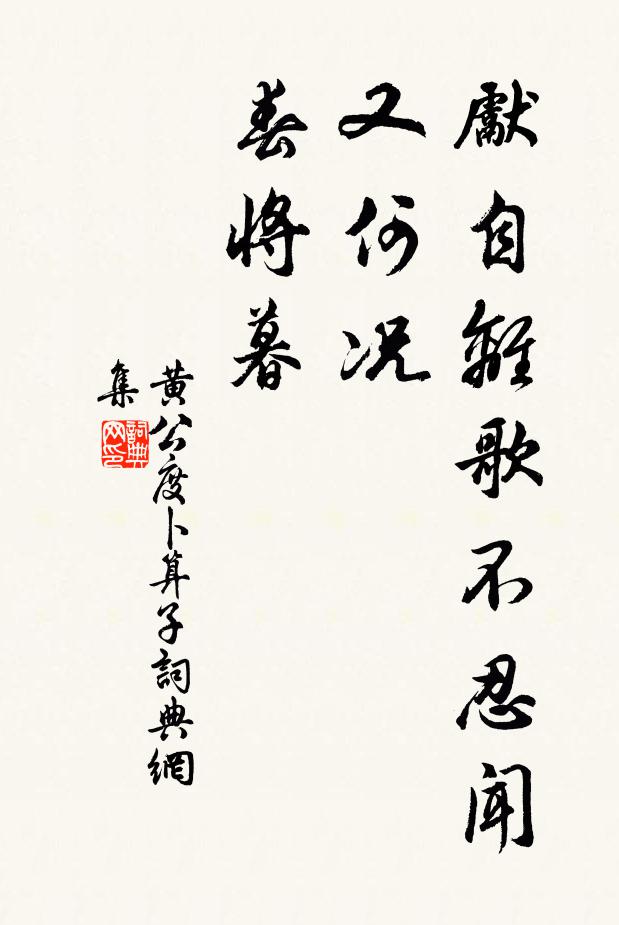 獻自離歌不忍聞
又何況
春將暮
黃公度卜算子詞典網
集
詞典
网印